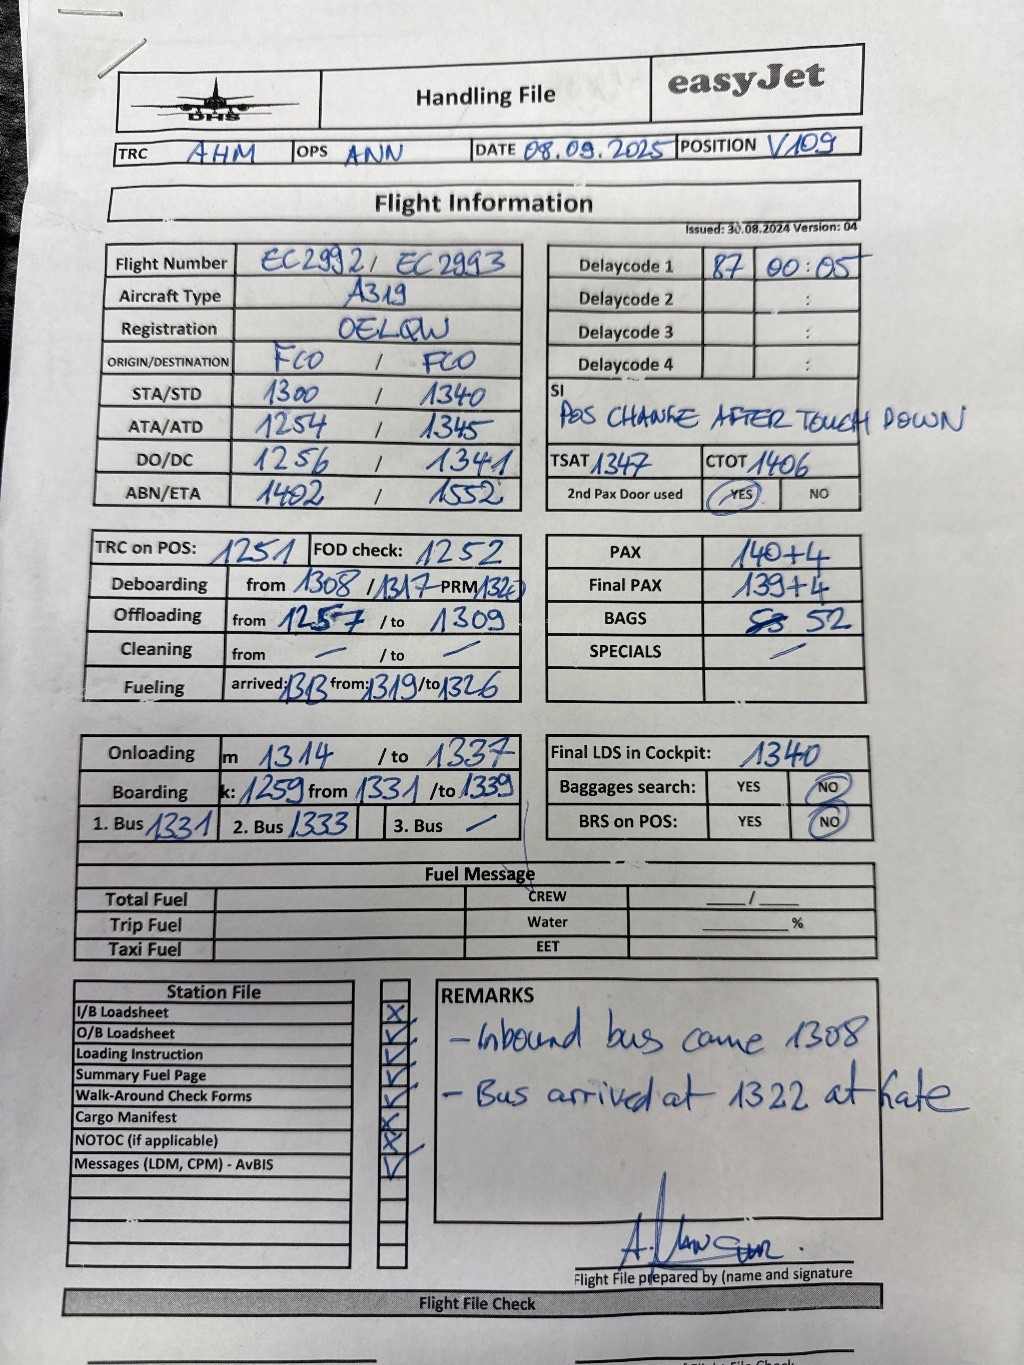 DHS Handling File easyJet
TRC AHM OPS ANN DATE 08.09.2025 POSITION V109
Flight Information
Issued: 30.08.2024 Version: 04
Flight Number EC2992 / EC2993
Aircraft Type A319
Registration OELQW
ORIGIN/DESTINATION FCO / FCO
STA/STD 1300 / 1340
ATA/ATD 1254 / 1345
DO/DC 1256 / 1341
ABN/ETA 1402 / 1552
Delaycode 1 87 00:05
Delaycode 2 :
Delaycode 3 :
Delaycode 4 :
SI
POS CHANGE AFTER TOUCH DOWN
TSAT 1347 CTOT 1406
2nd Pax Door used YES NO
TRC on POS: 1251 FOD check: 1252
Deboarding from 1308 / 1317 PRM
Offloading from 1257 / to 1309
Cleaning from — / to —
Fueling arrived: BB from: 1319 /to 1326
PAX 140+4
Final PAX 139+4
BAGS 52
SPECIALS —
Onloading m 1314 / to 1337
Boarding k: 1259 from 1331 /to 1339
1. Bus 1331 2. Bus 1333 3. Bus —
Final LDS in Cockpit: 1340
Baggages search: YES NO
BRS on POS: YES NO
Fuel Message
Total Fuel CREW ___/___
Trip Fuel Water ________%
Taxi Fuel EET
Station File
I/B Loadsheet X
O/B Loadsheet ✓
Loading Instruction ✓
Summary Fuel Page ✓
Walk-Around Check Forms ✓
Cargo Manifest X
NOTOC (if applicable) X
Messages (LDM, CPM) - AvBIS ✓
REMARKS
- Inbound bus came 1308
- Bus arrived at 1322 at Gate
Flight File prepared by (name and signature
Flight File Check